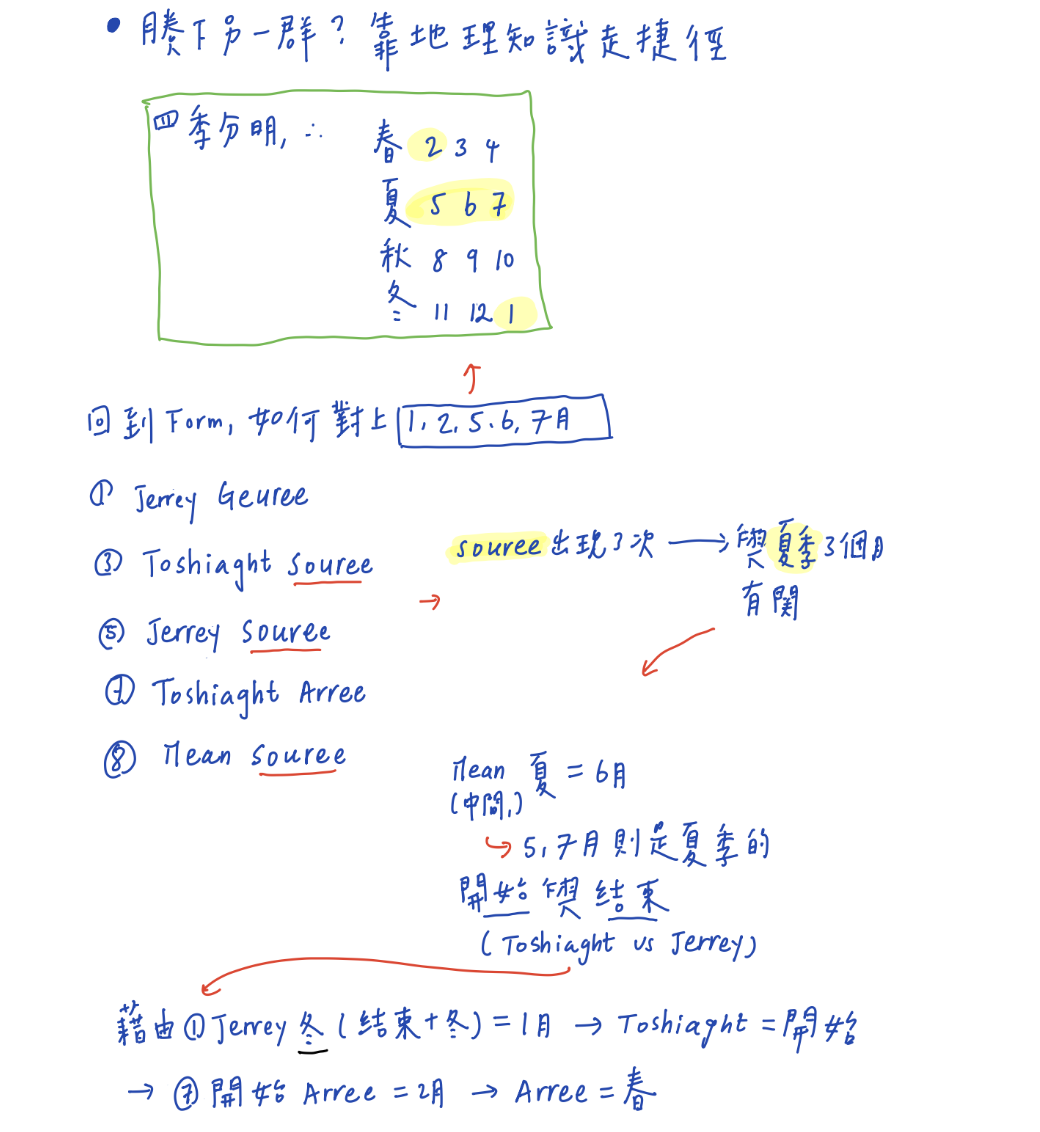 • 剩下另一群？靠地理知識走捷徑
四季分明, ∴
春 2 3 4
夏 5 6 7
秋 8 9 10
冬 11 12 1
回到 Form, 如何對上 1, 2, 5、6, 7月
① Jerrey Geuree
③ Toshiaght Souree
souree 出現3次 → 與夏季3個月
有關
→
⑤ Jerrey Souree
⑦ Toshiaght Arree
⑧ Mean Souree
Mean 夏 = 6月
(中間,)
↪ 5, 7月則是夏季的
開始與結束
(Toshiaght vs Jerrey)
藉由①Jerrey 冬 (結束+冬) = 1月 → Toshiaght = 開始
→ ⑦ 開始 Arree = 2月 → Arree = 春